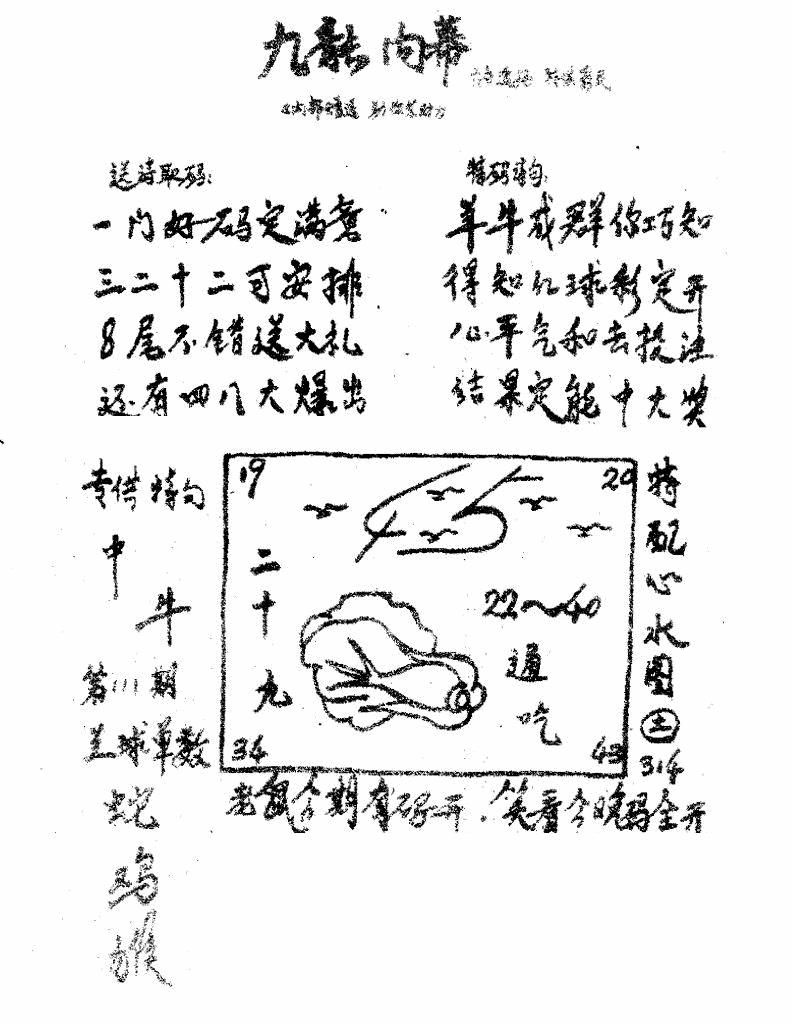 九龙内幕
送诗取码:
特码诗句:
一门好码定满意
三二十二可安排
8尾不错送大礼
还有四八大爆出
羊牛成群你巧知
得知红球彩定开
心平气和去投注
结果定能中大奖
专供特句
中
牛
第111期
兰球单数
蛇
鸡
猴
19
20
二十九
22~40
通吃
34
43
特配心水图
土
3.14
老鼠今期有码开.笑看今晚码全开